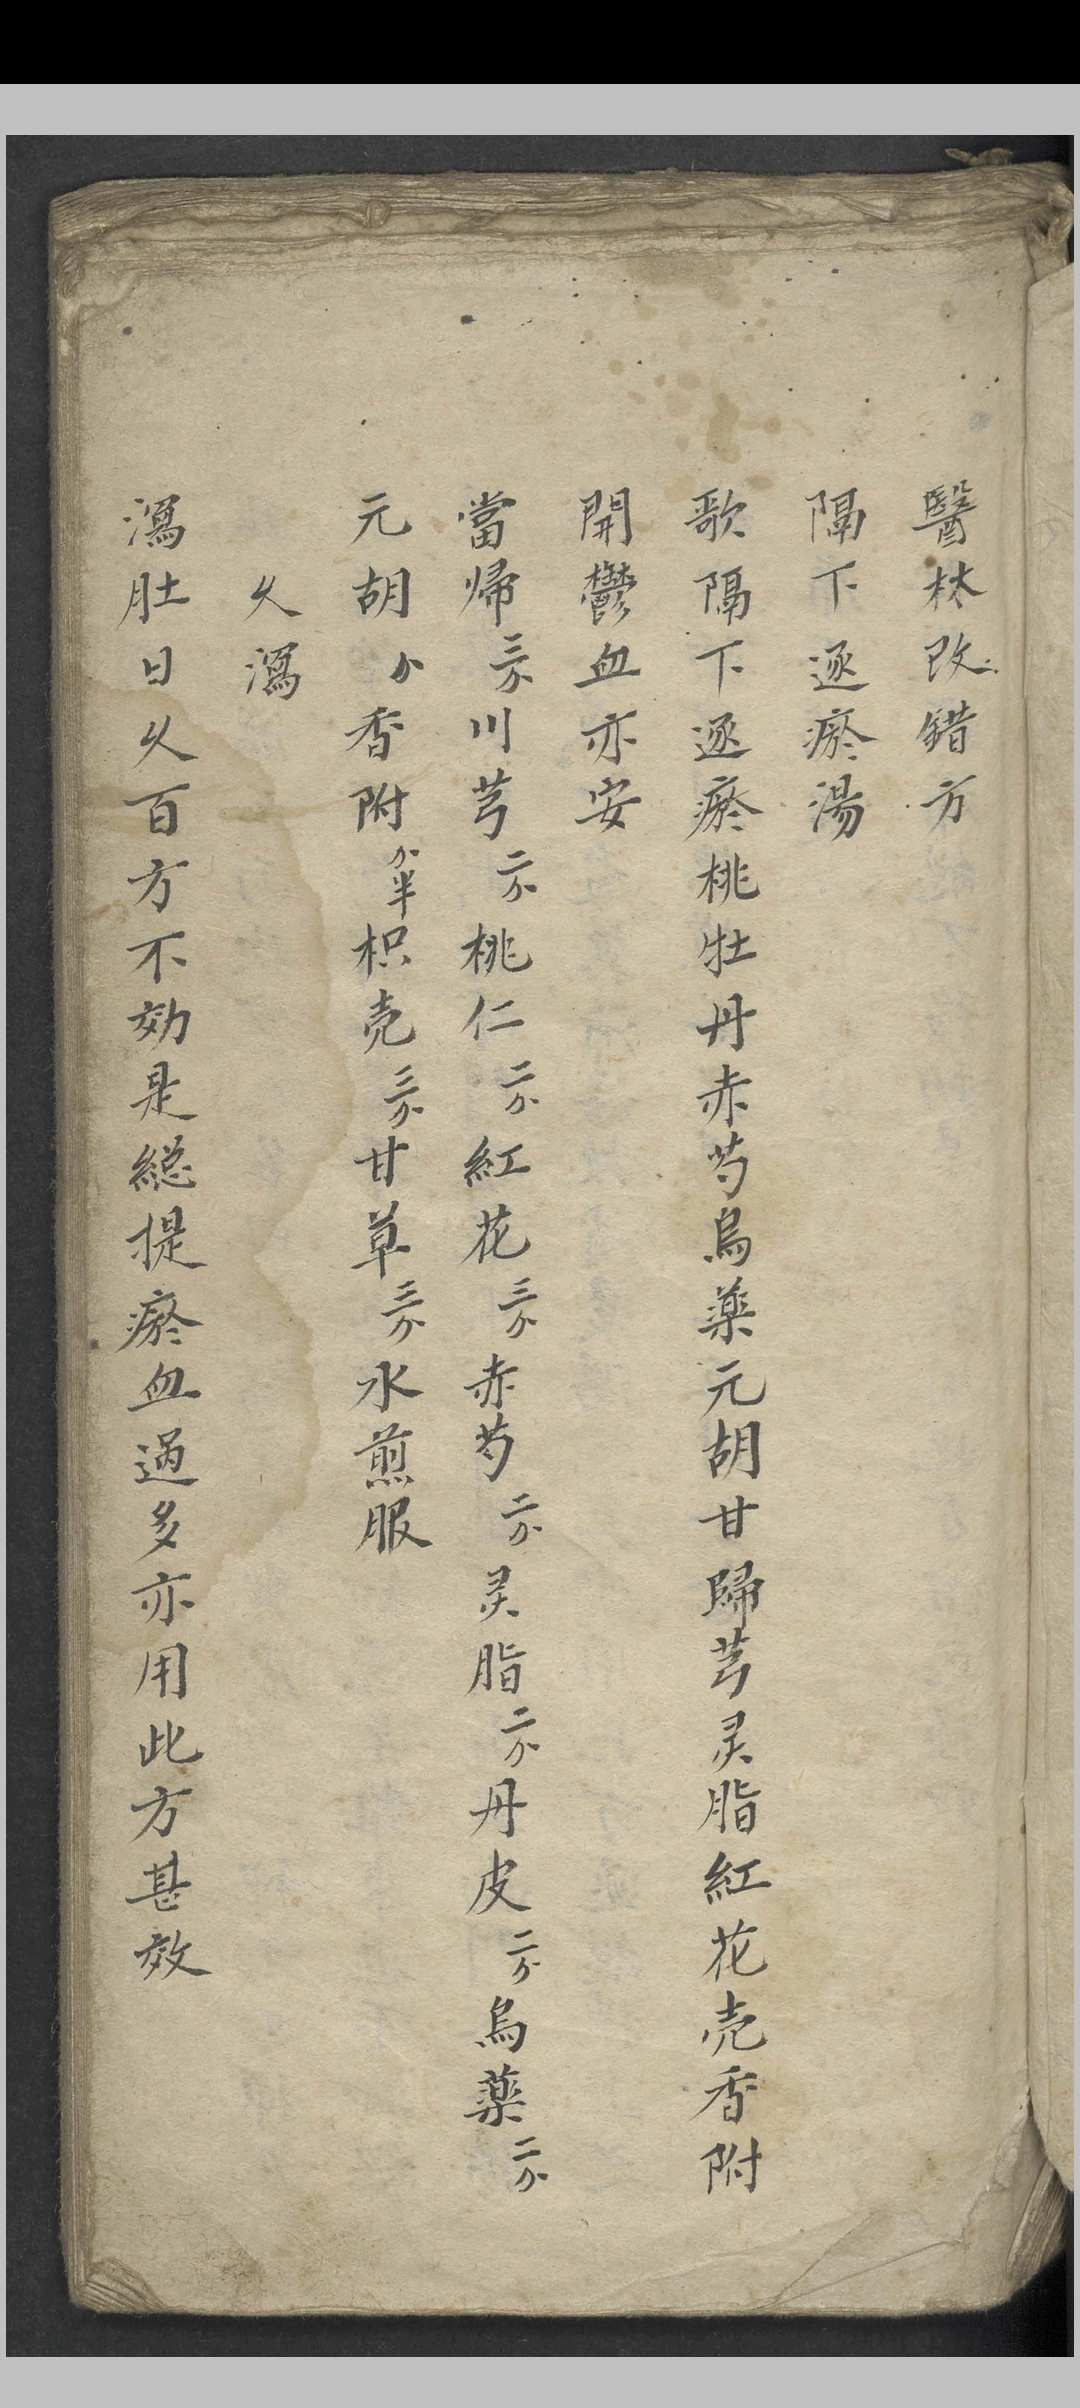 醫林改錯方
隔下逐瘀湯
歌隔下逐瘀桃牡丹赤芍烏藥元胡甘歸芎灵脂紅花壳香附
開鬱血亦安
當帰三分川芎二分桃仁二分紅花三分赤芍二分灵脂二分丹皮二分烏藥二分
元胡分香附分半枳壳三分甘草三分水煎服
久瀉
瀉肚日久百方不効是総提瘀血過多亦用此方甚效